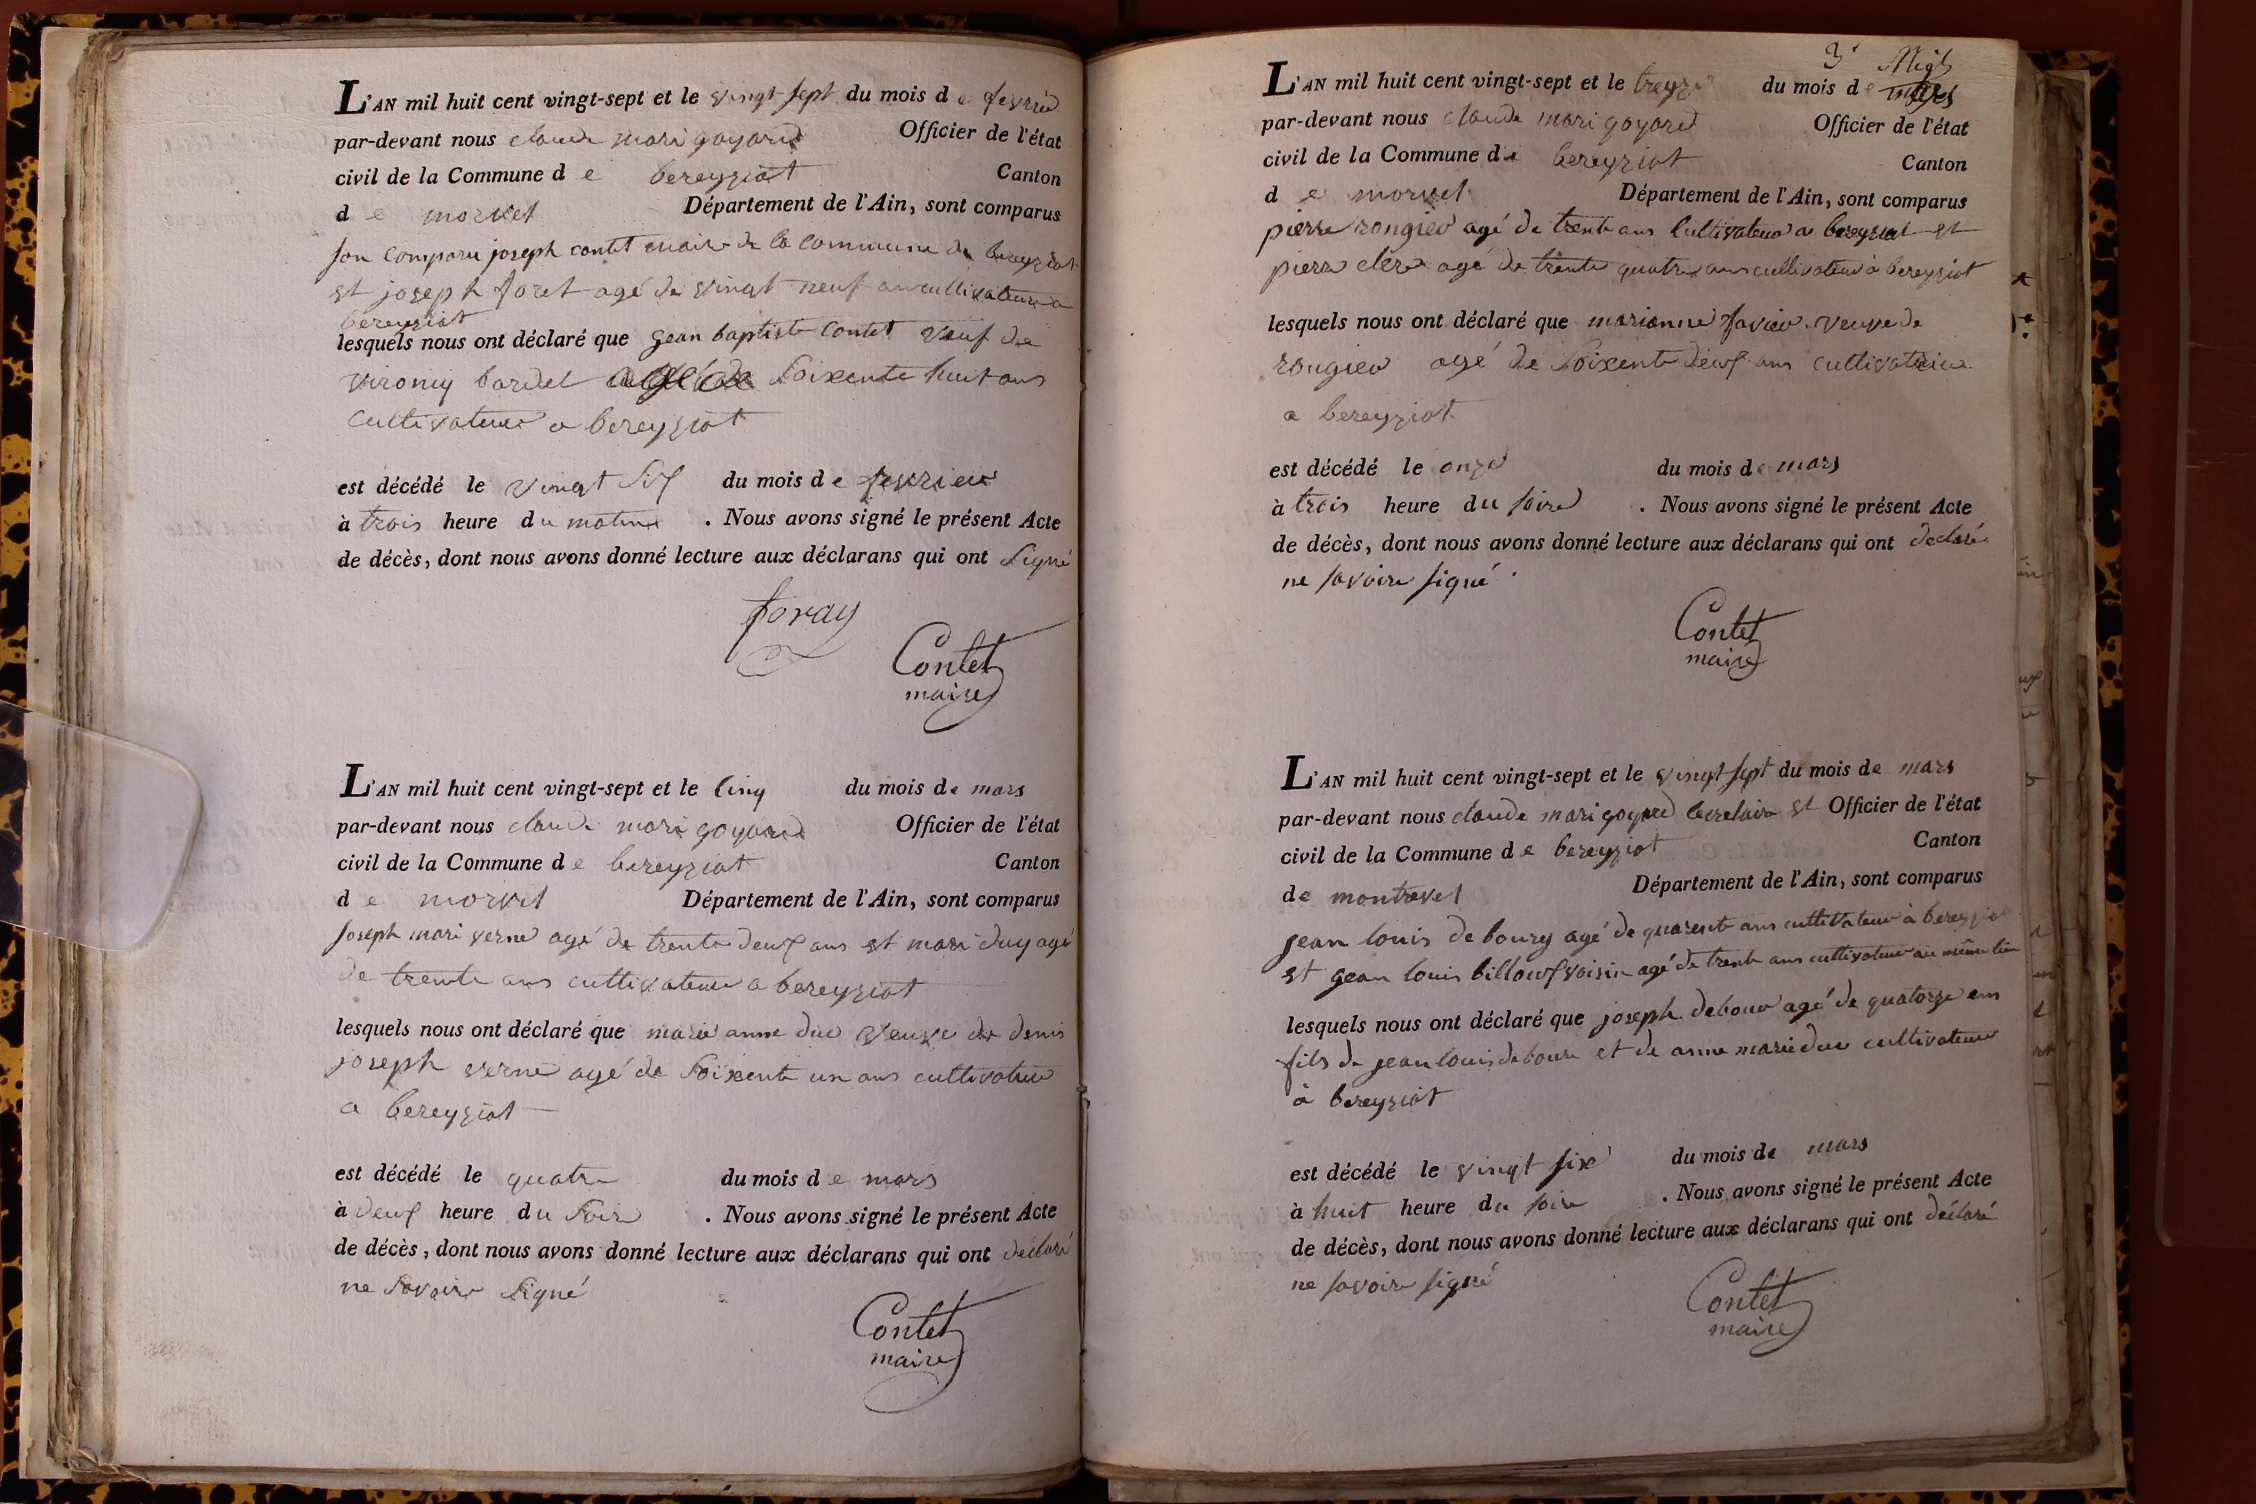 L'AN mil huit cent vingt-sept et le vingt sept du mois de fevrie
par-devant nous claude mari goyard Officier de l'état
civil de la Commune de bereyziat Canton
de morvel Département de l'Ain, sont comparus
son comparu joseph contet maire de la commune de bereyziat
et joseph foret agé de vingt neuf an cultivateur a
bereyziat
lesquels nous ont déclaré que gean baptiste contet veuf de
bardel soixente huit ans
cultivateur a bereyziat
est décédé le vingt six du mois de fevrier
à trois heure du matin . Nous avons signé le présent Acte
de décès, dont nous avons donné lecture aux déclarans qui ont signé
foray
Contet
maire
L'AN mil huit cent vingt-sept et le cinq du mois de mars
par-devant nous claude mari goyard Officier de l'état
civil de la Commune de bereyziat Canton
de morvel Département de l'Ain, sont comparus
joseph mari verne agé de trente deux ans et mari duy agé
de trente ans cultivateur a bereyziat
lesquels nous ont déclaré que marie anne duc veuve de denis
joseph verne agé de soixente un ans cultivateur
a bereyziat
est décédé le quatre du mois de mars
à deux heure du soir . Nous avons signé le présent Acte
de décès, dont nous avons donné lecture aux déclarans qui ont déclaré
ne savoir signé
Contet
maire
3
L'AN mil huit cent vingt-sept et le treyze du mois de mars
par-devant nous claude mari goyard Officier de l'état
civil de la Commune de bereyziat Canton
de morvel Département de l'Ain, sont comparus
pierre rongier agé de trente ans cultivateur a bereyziat et
pierre clere agé de trente quatre ans cultivateur à bereyziat
lesquels nous ont déclaré que marianne favier veuve de
rougier agé de soixente deux ans cultivatrice
a bereyziat
est décédé le onze du mois de mars
à trois heure du soire . Nous avons signé le présent Acte
de décès, dont nous avons donné lecture aux déclarans qui ont déclaré
ne savoire signé
Contet
maire
L'AN mil huit cent vingt-sept et le vingt sept du mois de mars
par-devant nous claude mari goyard secretaire et Officier de l'état
civil de la Commune de bereyziat Canton
de montrevel Département de l'Ain, sont comparus
jean louis de bourg agé de quarente ans cultivateur à bereyziat
et gean louis billouf voisin agé de trente ans cultivateur au même lieu
lesquels nous ont déclaré que joseph debour agé de quatorze ans
fils de jean louis deboure et de anne marie duc cultivateur
à bereyziat
est décédé le vingt six du mois de mars
à huit heure du soire . Nous avons signé le présent Acte
de décès, dont nous avons donné lecture aux déclarans qui ont déclaré
ne savoire signé
Contet
maire